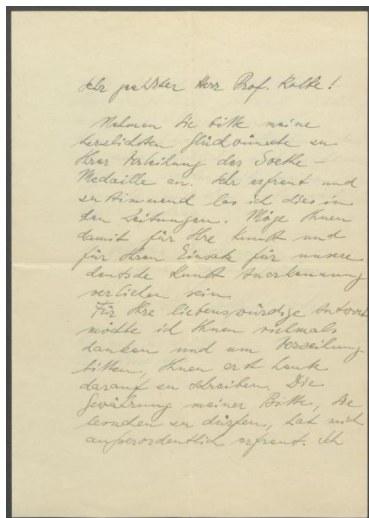 Sehr geehrter Herr Prof. Kolbe!
Nehmen Sie bitte meine
herzlichsten Glückwünsche zu
Ihrer Verleihung der Goethe-
Medaille an. Sehr erfreut und
zustimmend las ich dies in
den Zeitungen. Möge Ihnen
damit für Ihre Kunst und
für Ihren Einsatz für unsere
deutsche Kunst Anerkennung
verliehen sein.
Für Ihre liebenswürdige Antwort
möchte ich Ihnen vielmals
danken und um Verzeihung
bitten, Ihnen erst heute
darauf zu schreiben. Die
Gewährung meiner Bitte, Sie
besuchen zu dürfen, hat mich
außerordentlich erfreut. Ich